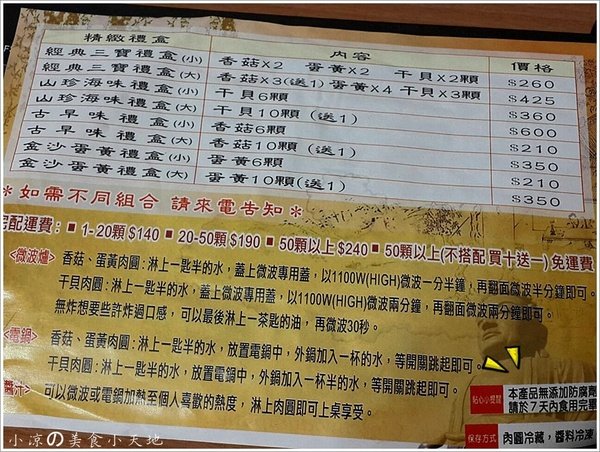 精緻禮盒 內容 價格
經典三寶禮盒(小) 香菇X2 蛋黃X2 干貝X2顆 $260
經典三寶禮盒(大) 香菇X3(送1) 蛋黃X4 干貝X3顆 $425
山珍海味禮盒(小) 干貝6顆 $360
山珍海味禮盒(大) 干貝10顆(送1) $600
古早味禮盒(小) 香菇6顆 $210
古早味禮盒(大) 香菇10顆(送1) $350
金沙蛋黃禮盒(小) 蛋黃6顆 $210
金沙蛋黃禮盒(大) 蛋黃10顆(送1) $350
*如需不同組合 請來電告知*
宅配運費:■1-20顆$140 ■20-50顆$190 ■50顆以上$240 ■50顆以上(不搭配買十送一)免運費
<微波爐>
香菇、蛋黃肉圓:淋上一匙半的水,蓋上微波專用蓋,以1100W(HIGH)微波一分半鐘,再翻面微波半分鐘即可。
干貝肉圓:淋上一匙半的水,蓋上微波專用蓋,以1100W(HIGH)微波兩分鐘,再翻面微波兩分鐘即可。
無炸想要些許炸過口感,可以最後淋上一茶匙的油,再微波30秒。
<電鍋>
香菇、蛋黃肉圓:淋上一匙半的水,放置電鍋中,外鍋加入一杯的水,等開關跳起即可。
干貝肉圓:淋上一匙半的水,放置電鍋中,外鍋加入一杯半的水,等開關跳起即可。
醬汁>
可以微波或電鍋加熱至個人喜歡的熱度,淋上肉圓即可上桌享受。
貼心小提醒 本產品無添加防腐劑
請於7天內食用完畢
保存方式 肉圓冷藏,醬料冷凍
小涼の美食小天地